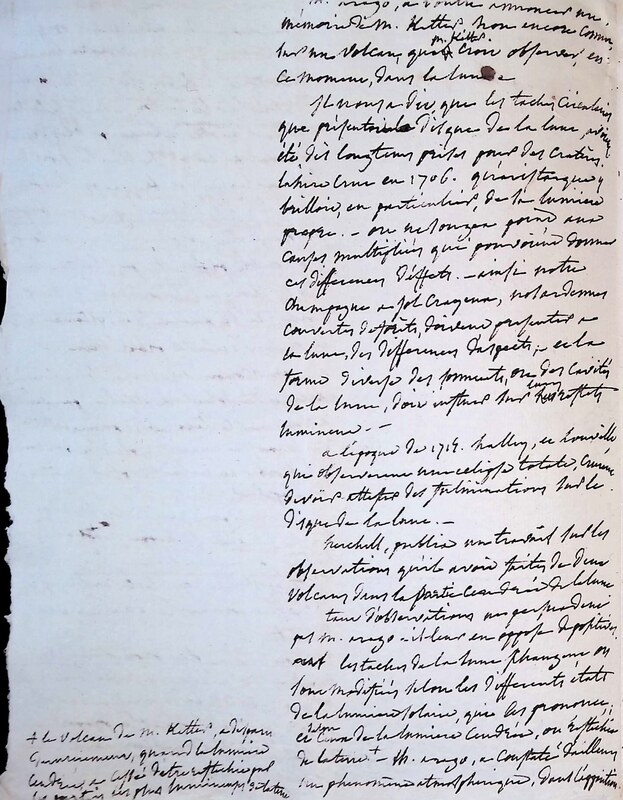 m. arago, a voulu annoncer un
mémoire de m. Kotter, non encore connu,
sur un volcan, que m. Kotter croit observer, en
ce moment, dans la lune
Il nous a dit, que les taches circulaires
que présentoit le disque de la lune, avoient
été dès longtems prises pour des cratères.
lahire crut en 1706. qu'aristarque y
brilloit, en particulier, de la lumière
propre. - on ne songea point aux
causes multipliées qui pouvoient donner
ces différences d'effets. - ainsi notre
champagne a sol crayeux, nos ardennes
couvertes de forêts, doivent présenter à
la lune, des différences d'aspects; et la
forme diverse des sommets, ou des cavités
de la lune, doit influer sur leurs reflets
lumineux. -
à l'époque de 1715. halley, et Louville
qui observèrent une éclipse totale, crurent
devoir attester des fulminations sur le
disque de la lune. -
herchell, publia un travail sur les
observations qu'il avoit faites de deux
volcans dans la partie cendrée de la lune
tant d'observations ne persuadent
pas m. arago - il leur en oppose de positives
les taches de la lune changent ou
sont modifiées selon les différents états
de la lumière solaire, que les prononce,
de la lumière cendrée, ou réfléchie
de la terre + - m. arago, a constaté d'ailleurs
un phénomène atmosphérique, dans l'apparition
+ le volcan de m. Kotter, a disparu
quand la lumière
cendrée, a cessé d'être réfléchie par
les parties les plus lumineuses de la terre